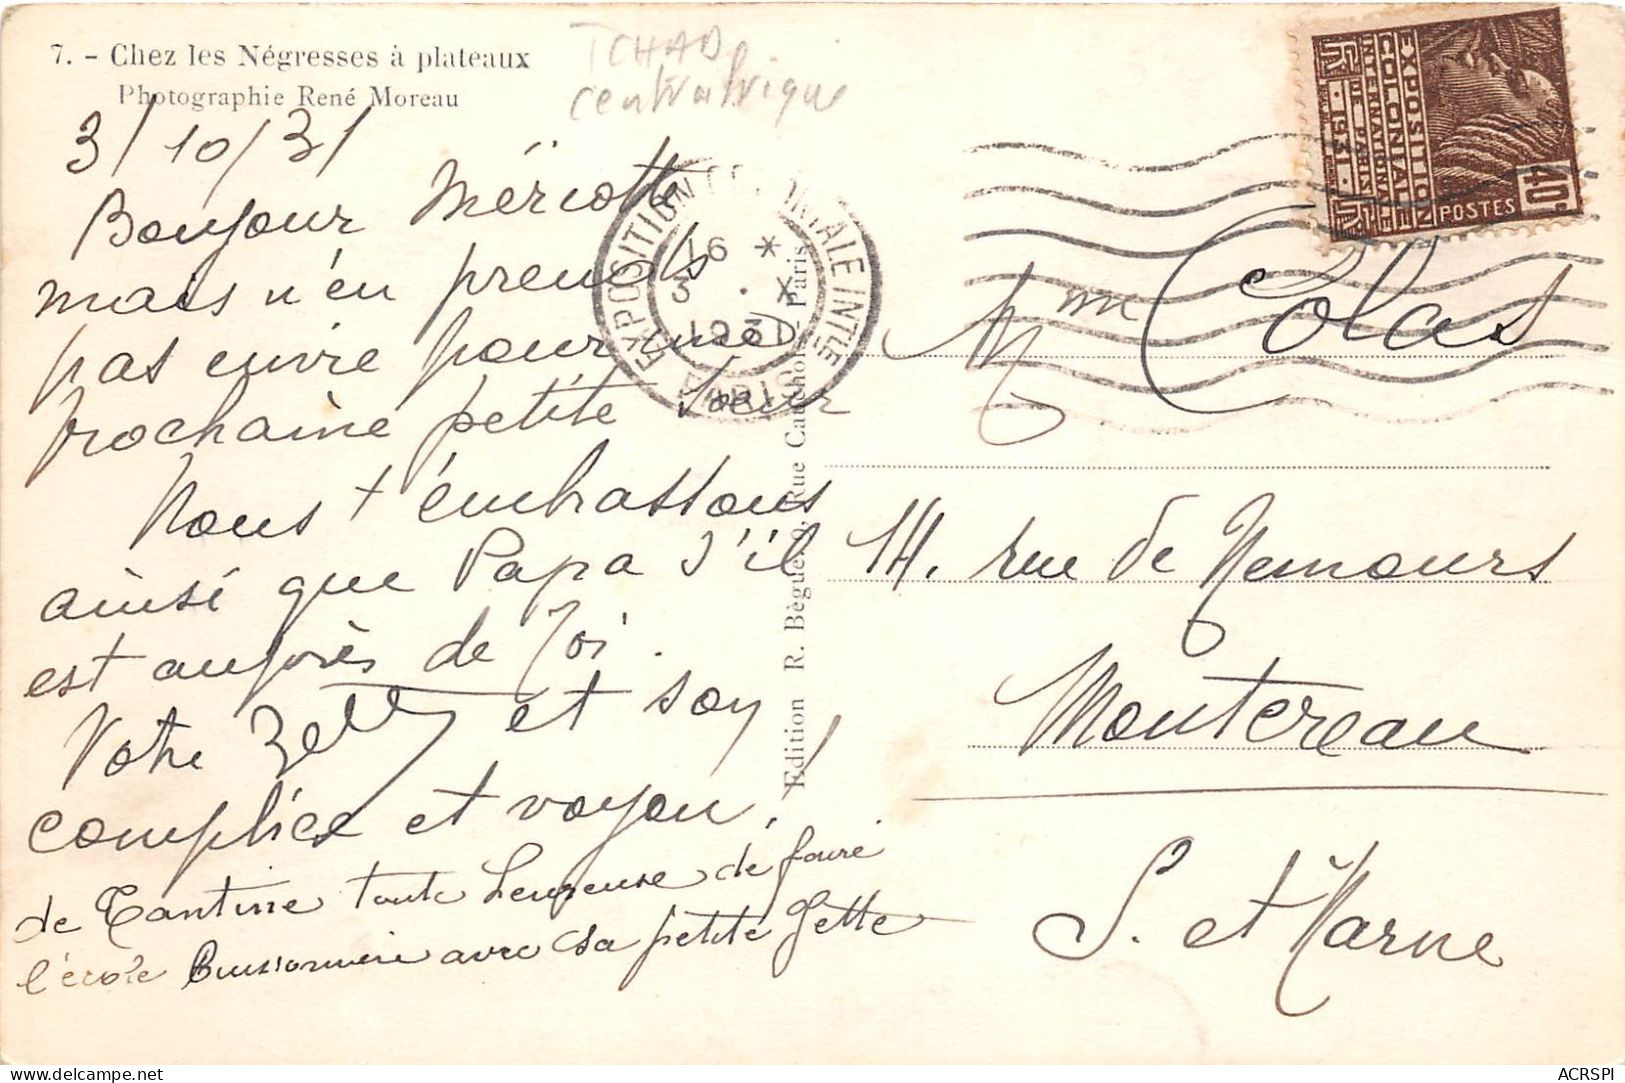 7. - Chez les Négresses à plateaux
Photographie René Moreau
TCHAD
centrafrique
3/10/31
Bonjour Mériotte
mais n'en prends
pas envie pour mod
prochaine petite soeur
Nous t'embrassons
ainsi que Papa s'il
est auprès de Toi.
Votre et son
complice et voyou!
de Tantine toute heureuse de faire
l'école Buissonnière avec sa petite Gette
Edition R. Bègue, Rue Cauchois - Paris
EXPOSITION COLONIALE INTLE
16 *
3 . X
1931
PARIS
EXPOSITION
COLONIALE
INTERNATIONALE
DE PARIS
1931
POSTES
40c
Mme Colas
14, rue de Nemours
Montereau
S. et Marne
ACRSPI